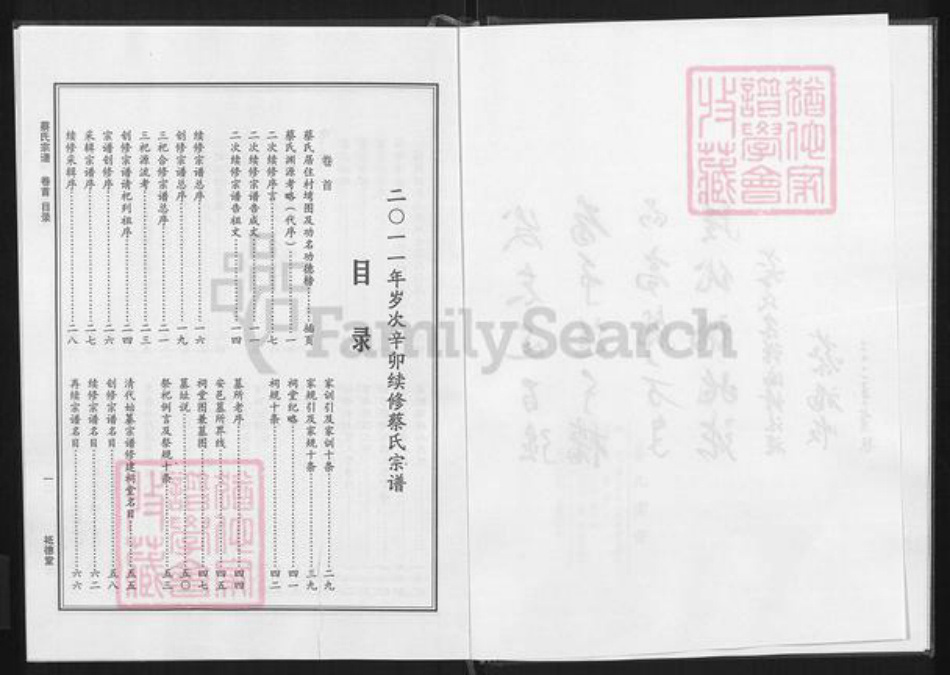 二〇一一年岁次辛卯续修蔡氏宗谱
目 录
卷 首
蔡氏居住村塆图及功名功德榜……插页
蔡氏渊源考略（代序）……一
二次续修序言……七
二次续修宗谱告成文……一一
二次续修宗谱告祖文……一四
续修宗谱总序……一六
创修宗谱总序……一九
三祀合修宗谱总序……二一
三祀源流考……二三
创修宗谱请祀列祖序……二四
宗谱创修序……二六
采辑宗谱序……二七
续修采辑序……二八
家训引及家训十条……二九
家规引及家规十条……三九
祠堂纪略……四一
祠规十条……四二
墓所老序……四四
安邑墓所界线……四五
祠堂图兼墓图……四七
墓址说……五〇
祭祀例言及祭规十条……五三
清代始纂宗谱修建祠堂名目……五五
创修宗谱名目……五八
续修宗谱名目……六二
再续宗谱名目……六六
蔡氏宗谱 卷首 目录
一
祗德堂
猶他家譜學會收藏
猶他家譜學會收藏
FamilySearch